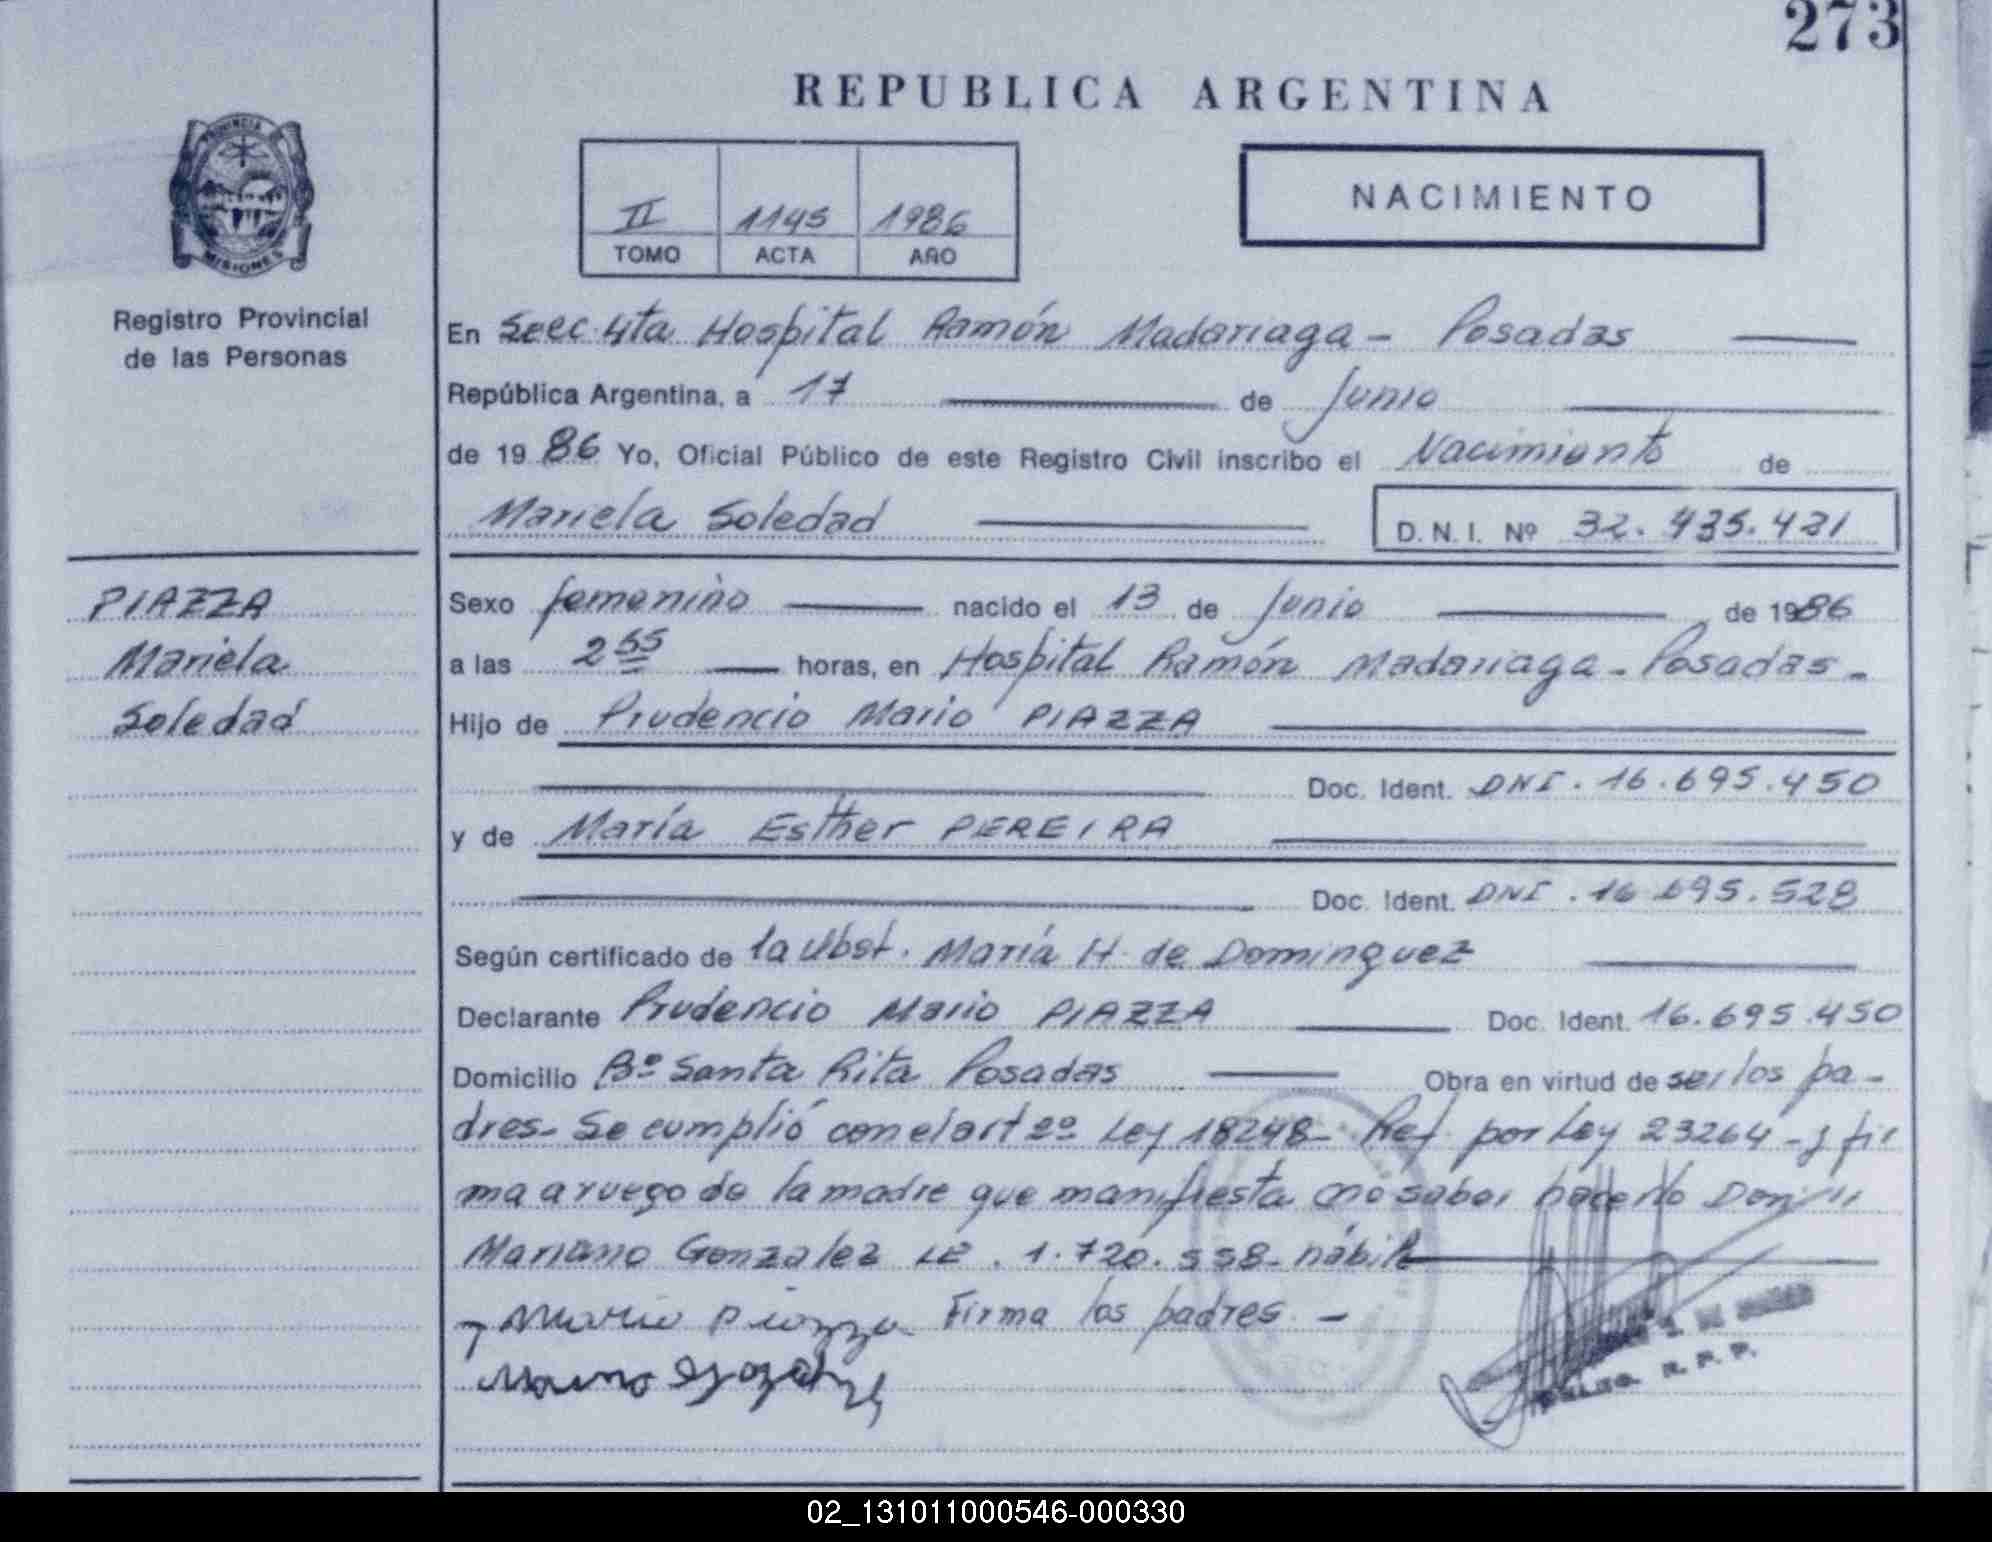 273
REPUBLICA ARGENTINA
PROVINCIA
MISIONES
II 1145 1986
TOMO ACTA AÑO
NACIMIENTO
Registro Provincial
de las Personas
En Secc. 4ta Hospital Ramón Madariaga - Posadas
República Argentina, a 17 de Junio
de 1986 Yo, Oficial Público de este Registro Civil inscribo el Nacimiento de
Mariela Soledad D. N. I. Nº 32.435.421
PIAZZA
Mariela
Soledad
Sexo femenino nacido el 13 de Junio de 1986
a las 2 55 horas, en Hospital Ramón Madariaga - Posadas -
Hijo de Prudencio Mario PIAZZA
Doc. Ident. DNI. 16.695.450
y de María Esther PEREIRA
Doc. Ident. DNI. 16.695.528
Según certificado de la Obst. María H. de Dominguez
Declarante Prudencio Mario PIAZZA Doc. Ident. 16.695.450
Domicilio Bº Santa Rita Posadas Obra en virtud de ser los pa-
dres - Se cumplió con el art 2º Ley 18248 - Ref. por Ley 23264 - y fir
ma a ruego de la madre que manifiesta no saber hacerlo Don
Mariano Gonzalez LE. 1.720.558 - hábil
Mario Piazza Firma los padres. -
R. P. P.
02_131011000546-000330